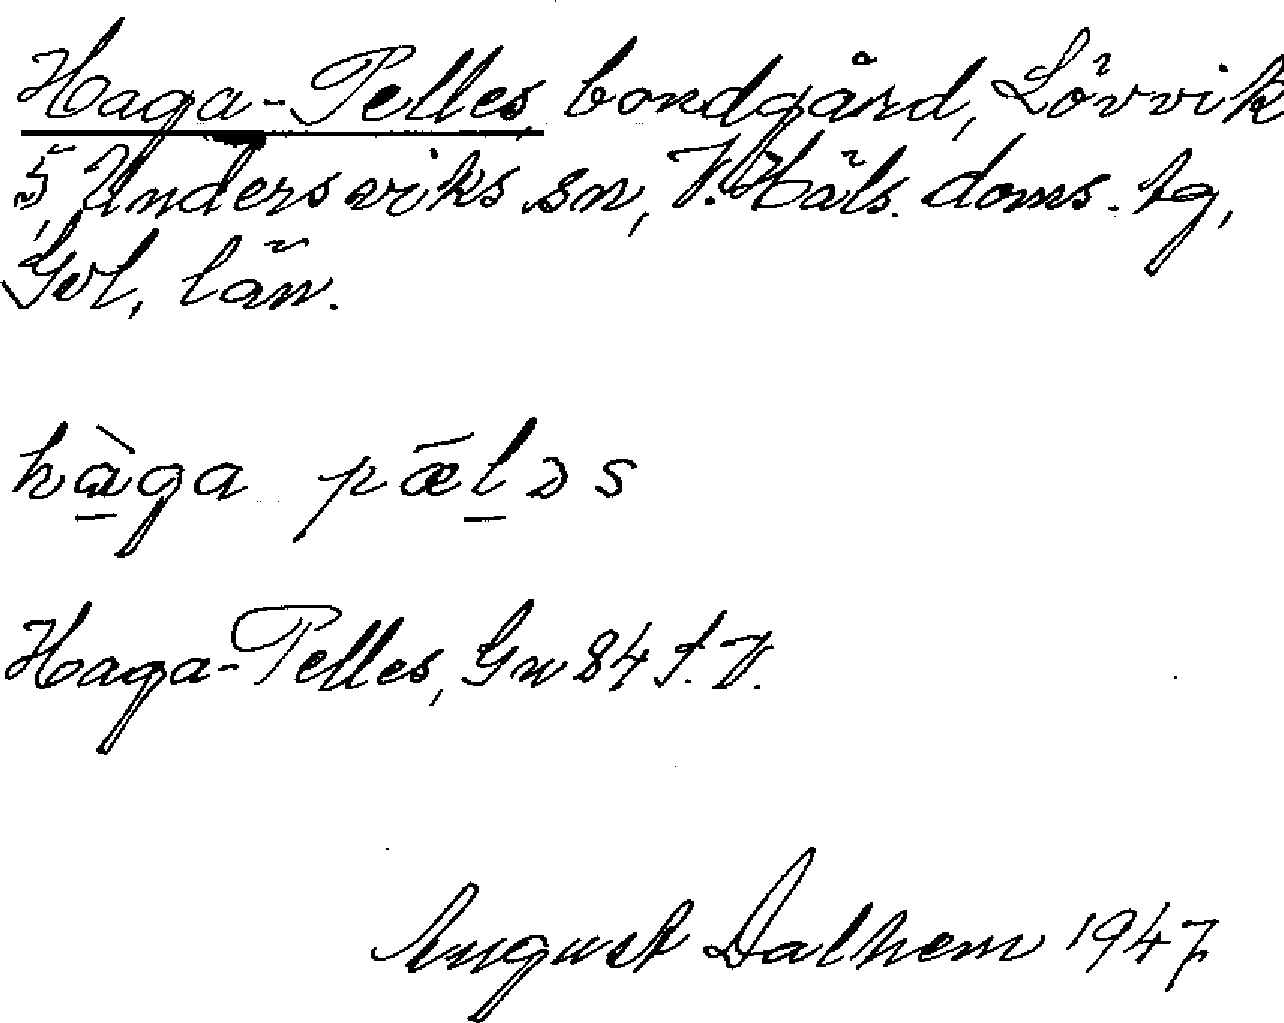 Haga-Pelles bondgård, Lövvik
5, Undersviks sn, V. Häls. doms. tg,
Gvl. län.
hàga pælǝs
Haga-Pelles, Gn 84 f. V.
August Dalhem 1947